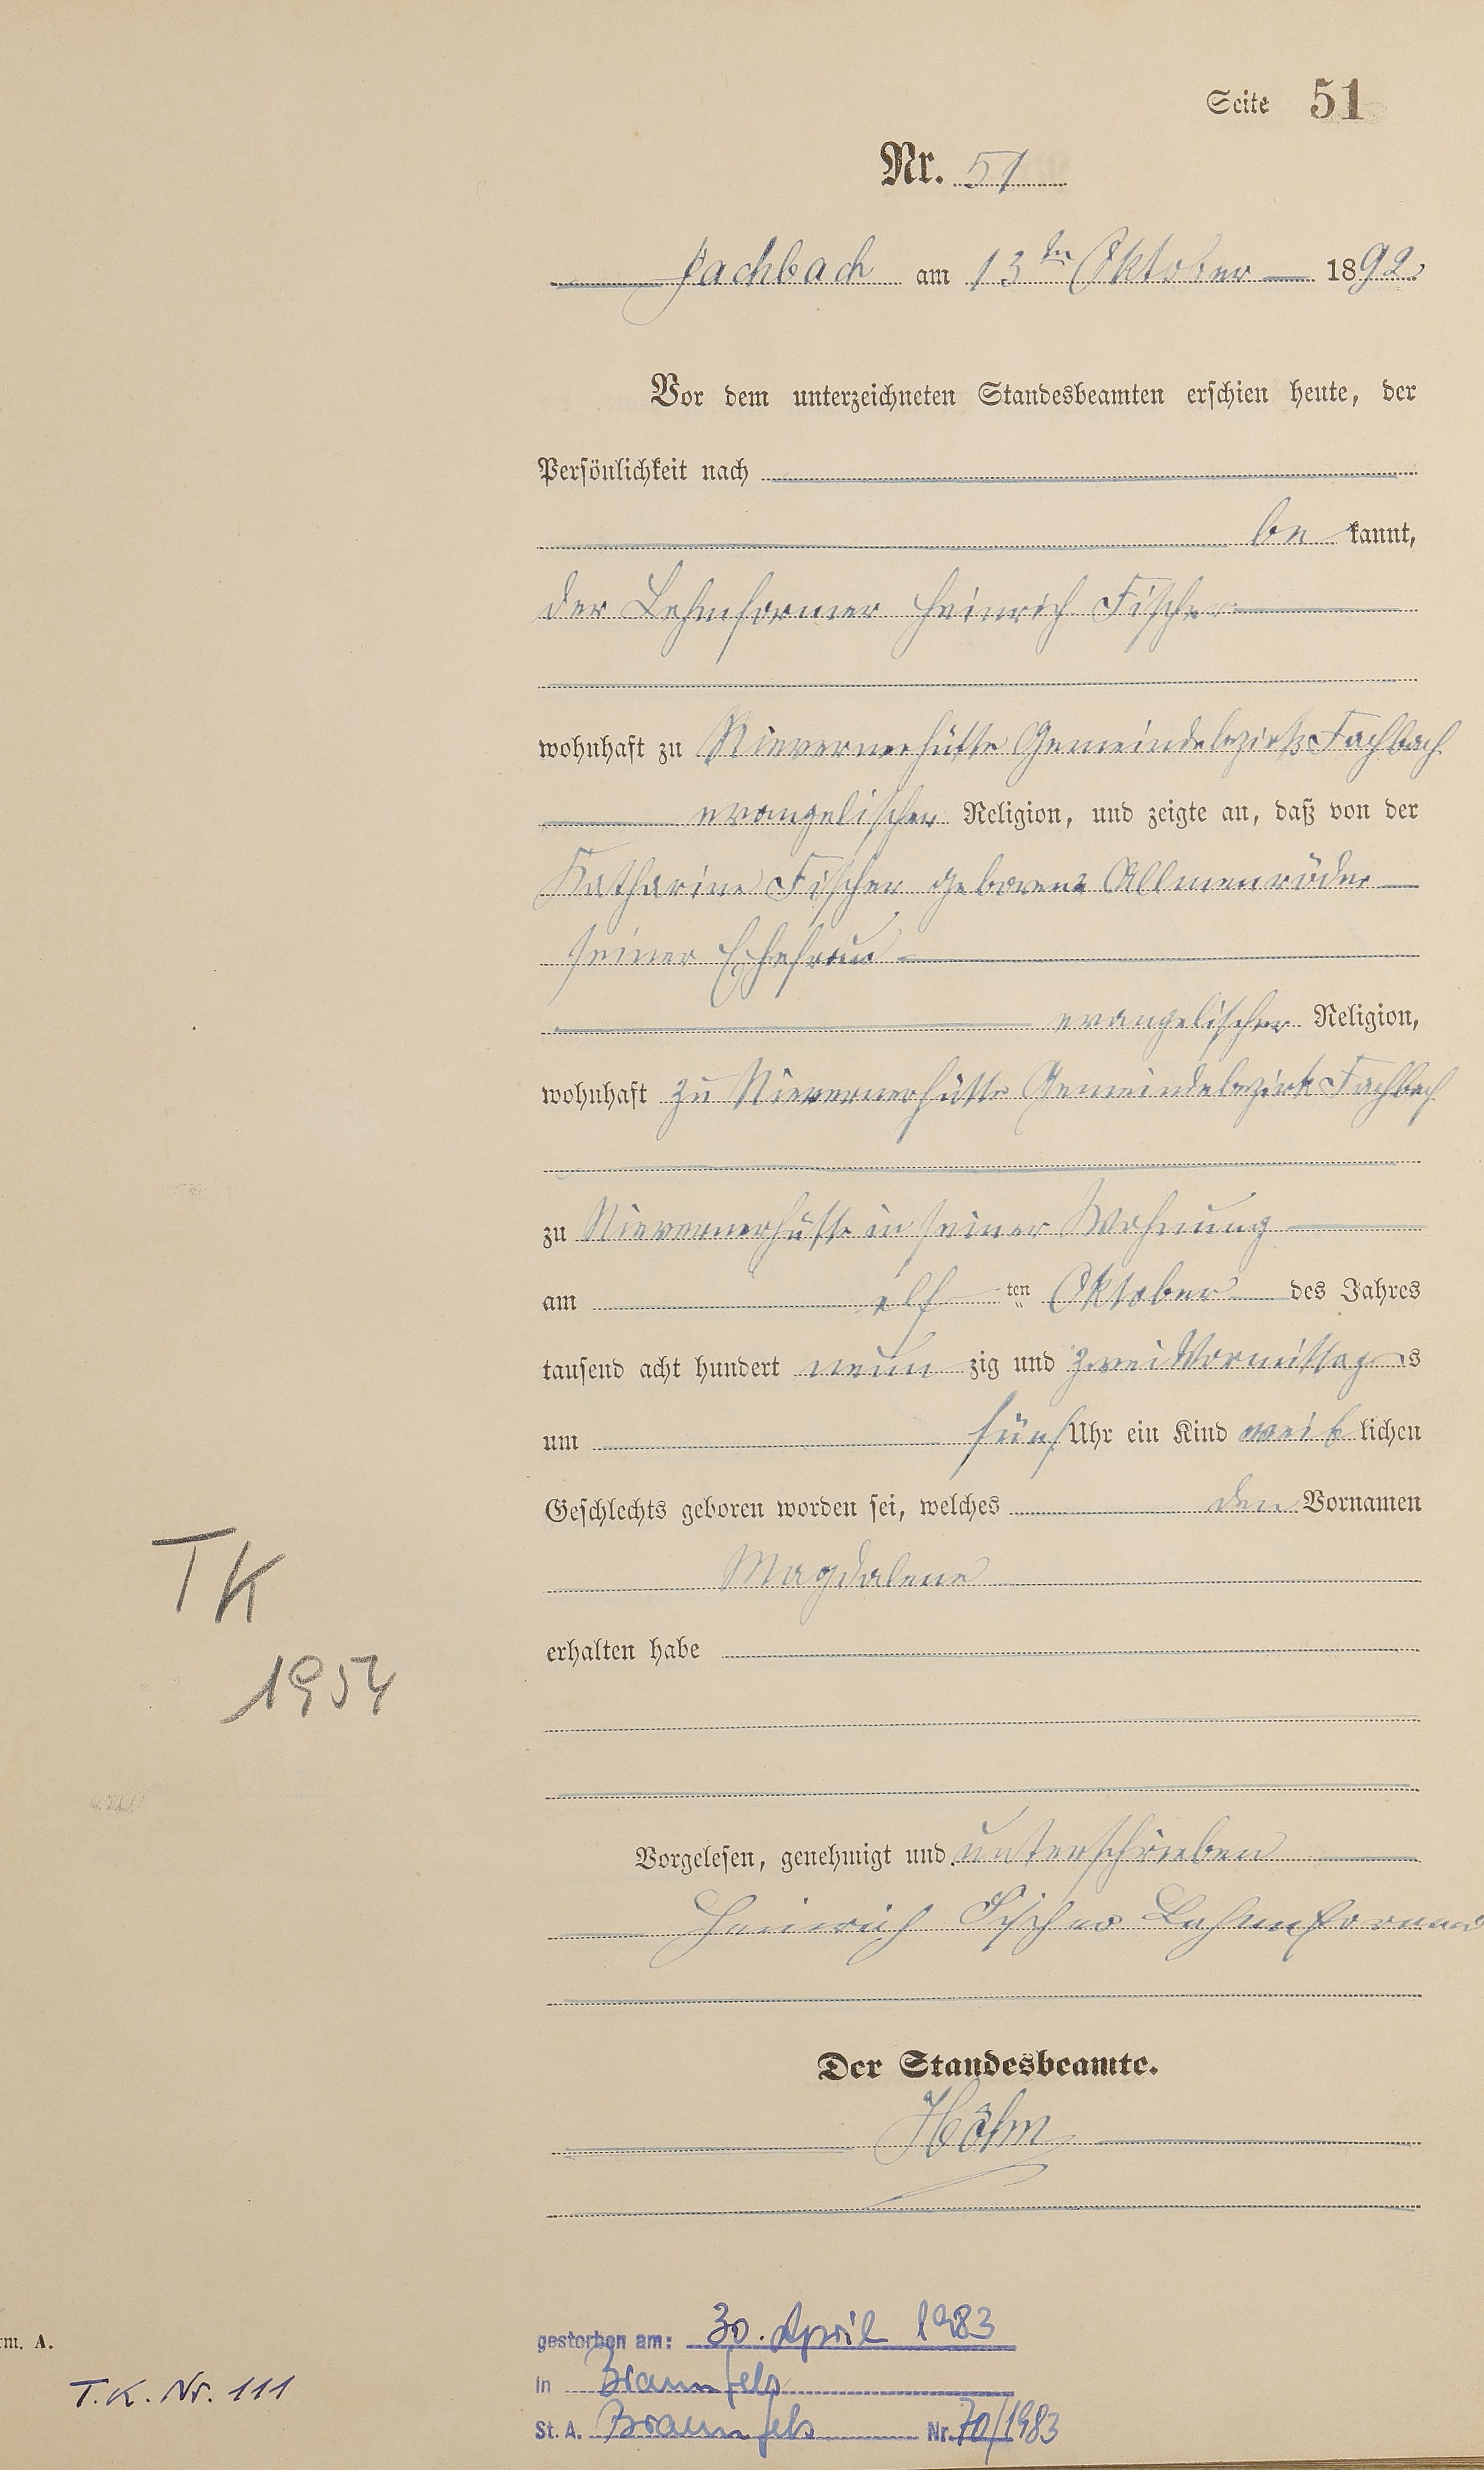 Seite 51
Nr. 51
Fachbach am 13ten Oktober 1892.
Vor dem unterzeichneten Standesbeamten erschien heute, der
Persönlichkeit nach
be kannt,
der Lehmformer Heinrich Fischer
wohnhaft zu Nievernerhütte Gemeindebezirk Fachbach
evangelischer Religion, und zeigte an, daß von der
Katharine Fischer geborene Allmenröder
seiner Ehefrau
evangelischer Religion,
wohnhaft zu Nievernerhütte Gemeindebezirk Fachbach
zu Nievernerhütte in seiner Wohnung
am elf ten Oktober des Jahres
tausend acht hundert neun zig und zwei Vormittags
um fünf Uhr ein Kind weib lichen
Geschlechts geboren worden sei, welches den Vornamen
Magdalene
erhalten habe
TK
1954
Vorgelesen, genehmigt und unterschrieben
Heinrich Fischer Lehmformer
Der Standesbeamte.
Höhn
rm. A.
T.K. Nr. 111
gestorben am: 30. April 1983
in Braunfels
St. A. Braunfels Nr. 70/1983